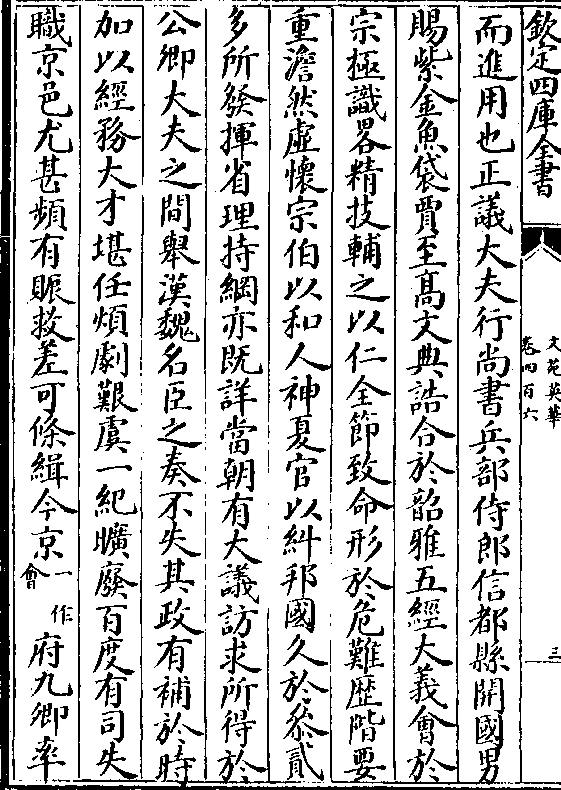 欽定四庫全書
文苑英華
卷四百六
三
而進用也正議大夫行尚書兵部侍郎信都縣開國男
賜紫金魚袋賈至髙文典誥合於韶雅五經大義會於
宗極識畧精技輔之以仁全節致命形於危難歴階要
重澹然虚懐宗伯以和人神夏官以糾邦國久於叅貳
多所發揮省理持綱亦既詳當朝有大議訪求所得於
公卿大夫之間舉漢魏名臣之奏不失其政有補於時
加以經務大才堪任煩劇艱虞一紀曠廢百度有司失
職京邑尤甚頻有賑救差可條緝今京一作會府九卿率